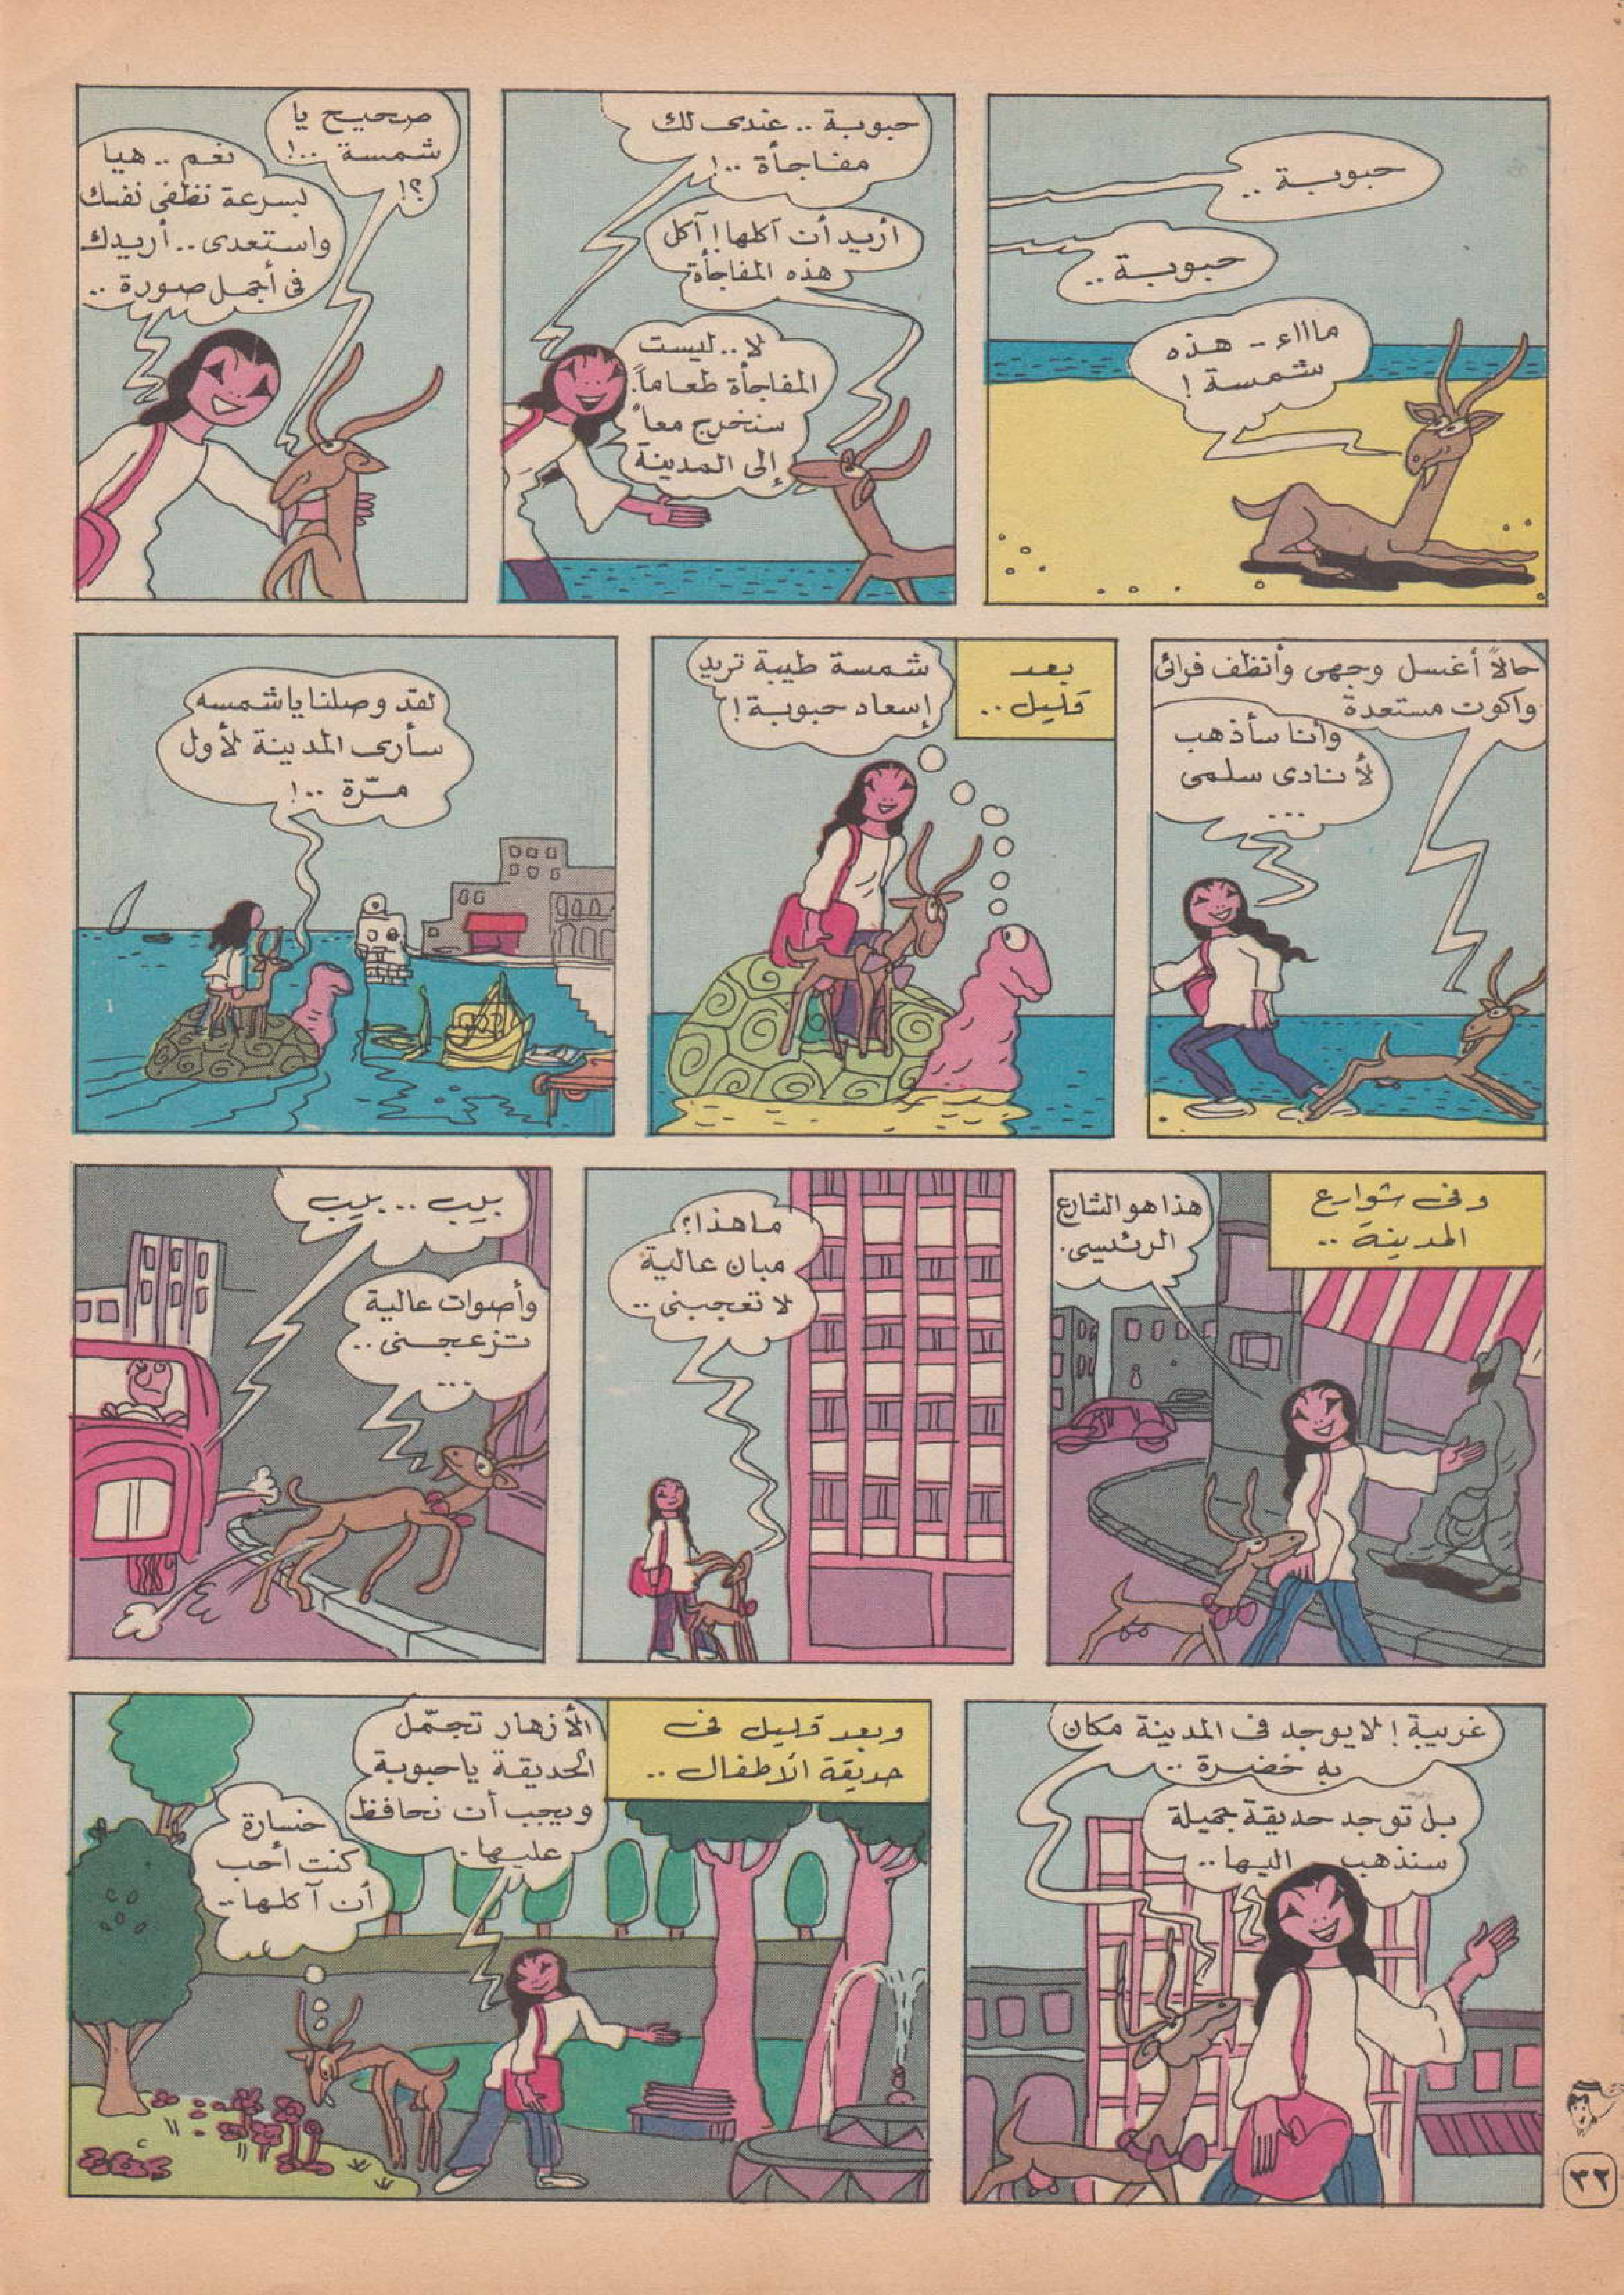 حبوبة ..
حبوبة ..
ماااء - هذه
شمسة !
حبوبة .. عندى لك
مفاجأة ..!
أريد أن آكلها ! آكل
هذه المفاجأة
لا .. ليست
المفاجأة طعاماً.
سنخرج معاً
إلى المدينة
صحيح يا
شمسة ..!
؟!
نعم .. هيا
بسرعة نظفى نفسك
واستعدى .. أريدك
فى أجمل صورة ..
حالاً أغسل وجهى وأنظف فرائى
واكون مستعدة
وأنا سأذهب
لأنادى سلمى
...
بعد
قليل ..
شمسة طيبة تريد
إسعاد حبوبة !
لقد وصلنا يا شمسه
سأرى المدينة لأول
مرّة ..!
وفى شوارع
المدينة ..
هذا هو الشارع
الرئيسى .
ما هذا ؟
مبان عالية
لا تعجبنى ..
بيب ... بيب
وأصوات عالية
تزعجنى ..
...
غريبة ! لا يوجد فى المدينة مكان
به خضرة ..
بل توجد حديقة جميلة
سنذهب اليها ..
وبعد قليل فى
حديقة الأطفال ..
الأزهار تجمّل
الحديقة يا حبوبة
ويجب أن نحافظ
عليها .
خسارة
كنت أحب
أن آكلها ..
٣٢